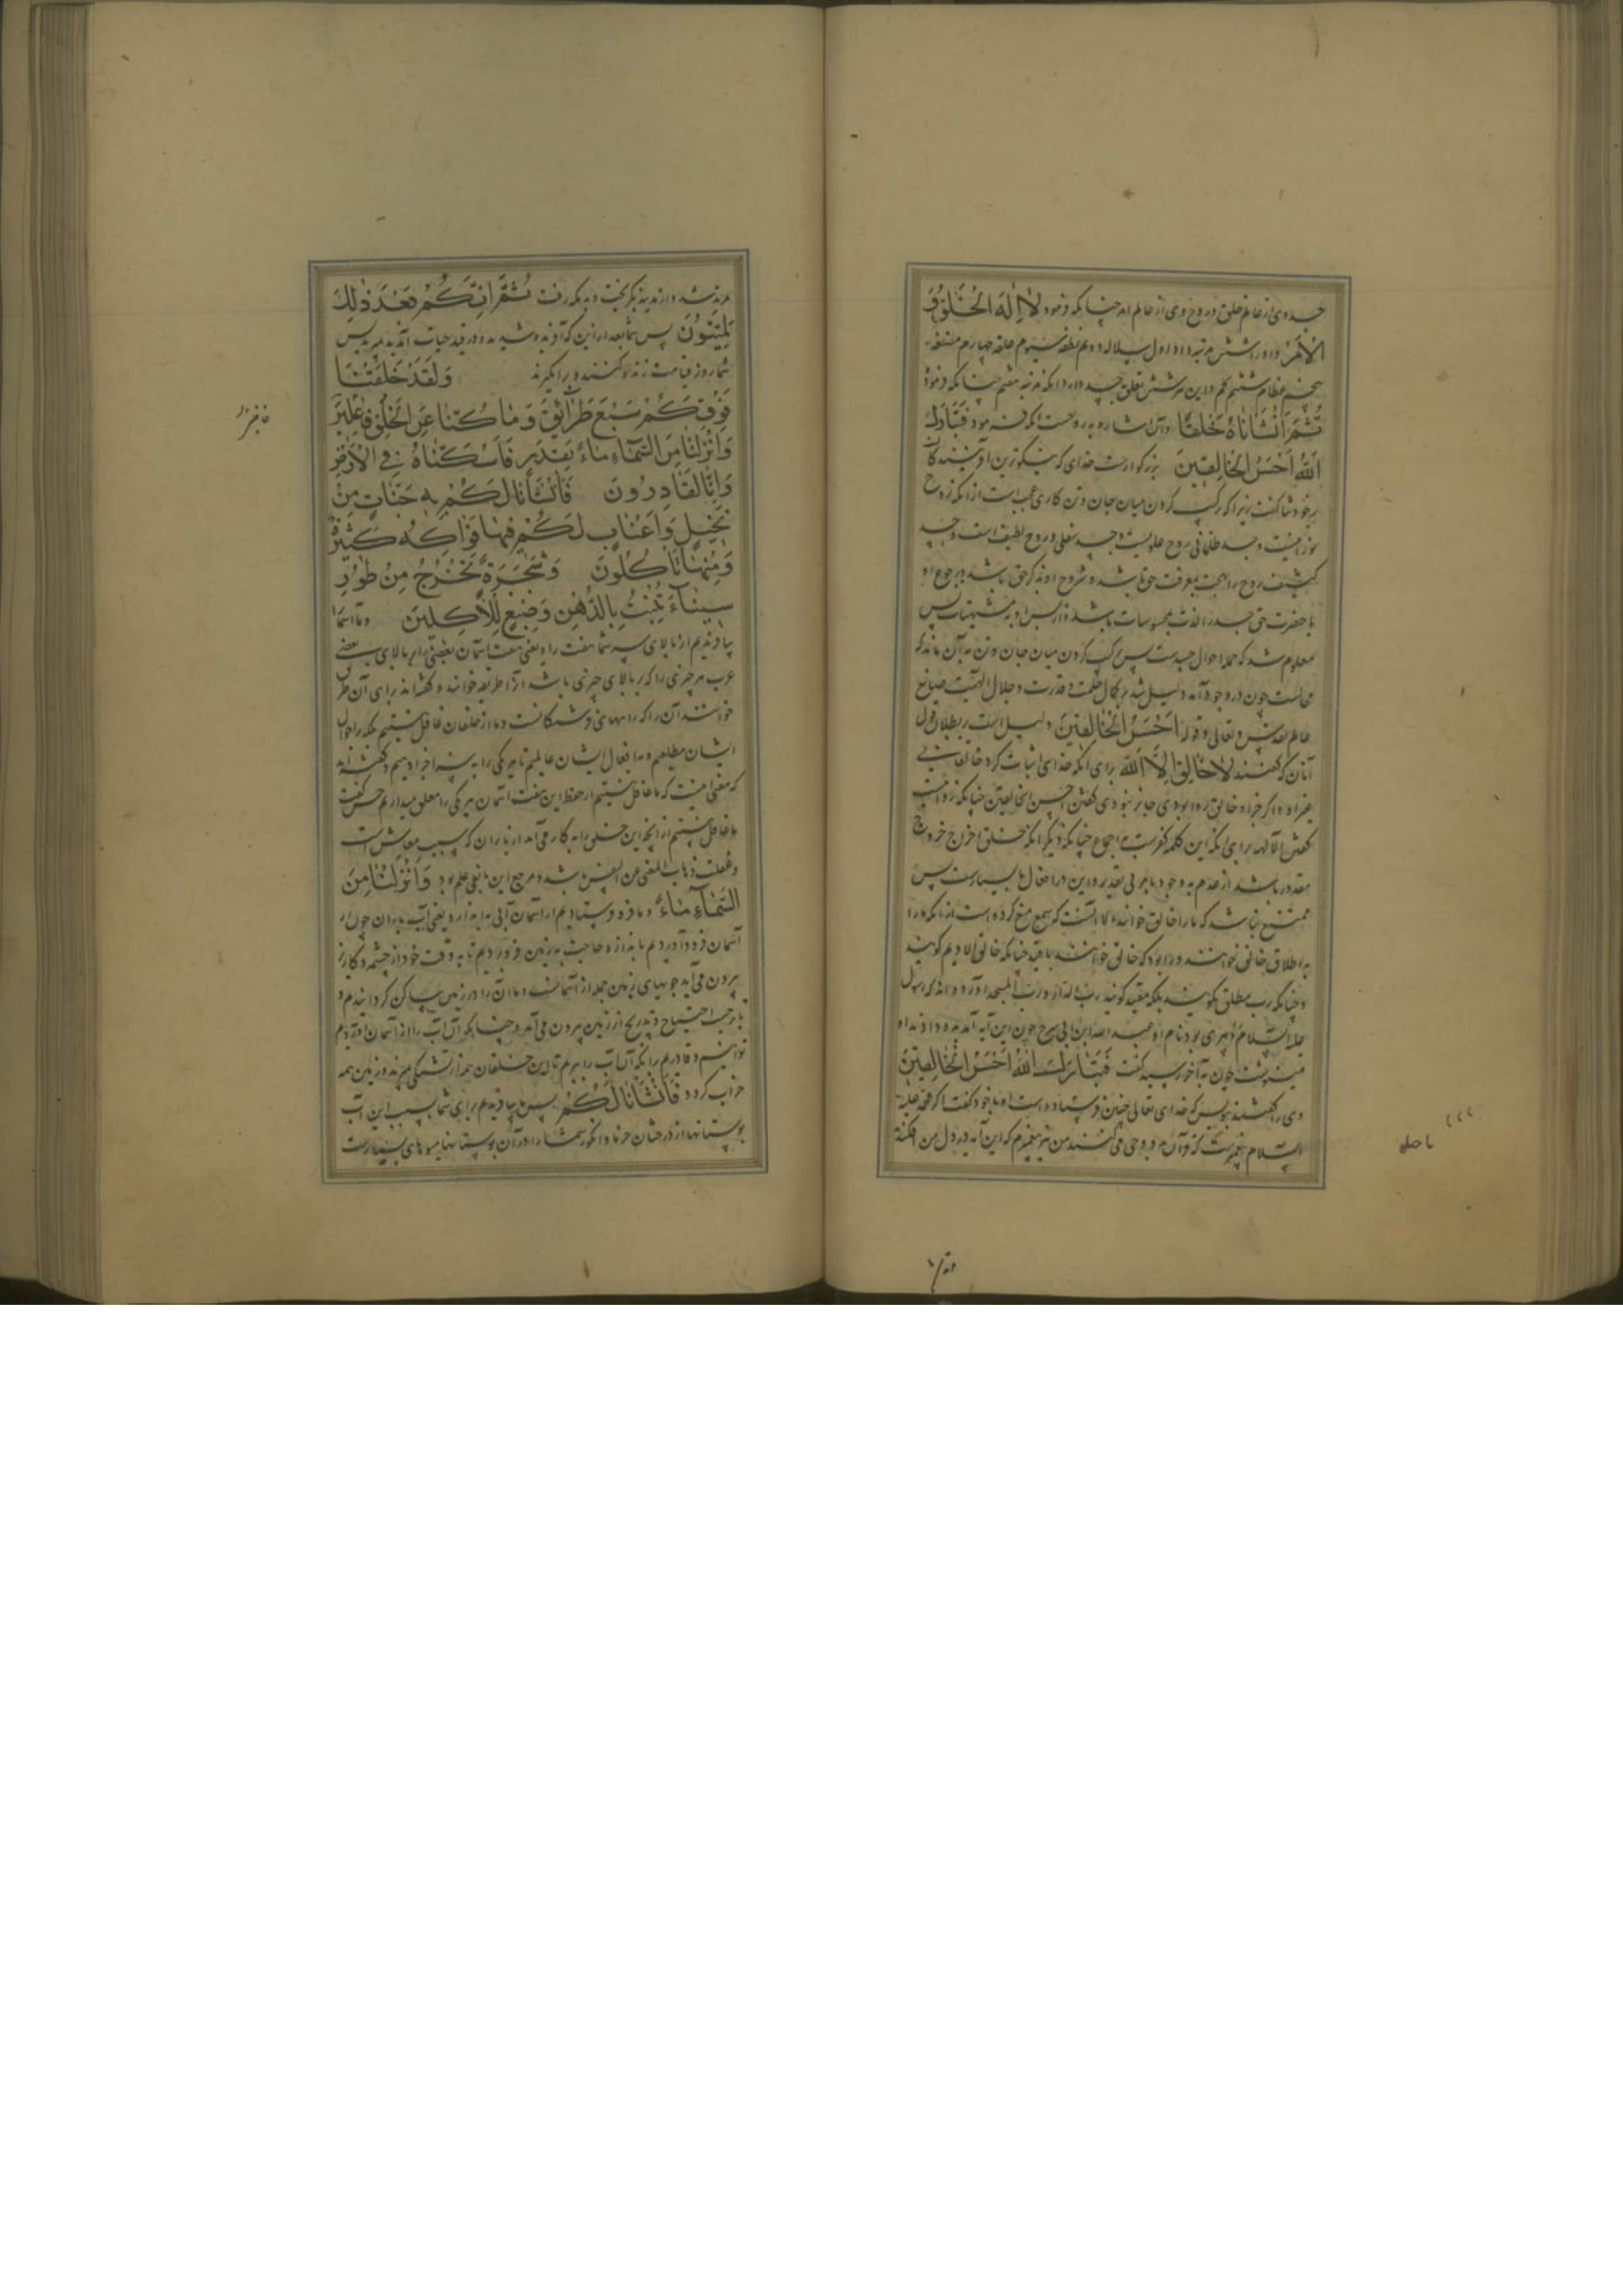 جسد وی از عالم خلق و روح وی از عالم امر چنانکه فرمود لا اِلٰهَ الْخَلْقُ وَ
الْاَمْرُ و او را شش مرتبه داد اول سلاله دوم نطفه سیوم علقه چهارم مضغه
پنجم عظام ششم لحم و این هر شش تعلق بجسد دارد آنکه مرتبه هفتم چنانکه فرمود
ثُمَّ اَنْشَأْنَاهُ خَلْقًا و آن اشاره به روحست آنکه فرمود فَتَبَارَكَ
اللّٰهُ اَحْسَنُ الْخَالِقِينَ بزرگوارست خدای که نیکوترین آفرینندگان
بر خود ثنا گفت زیرا که ترکیب کردن میان جان و تن کاری عجب است از آنکه روح
نورانیست و جسد ظلمانی روح علویست و جسد سفلی و روح لطیف است و جسد
کثیف روح را بهجت بمعرفت حق باشد و شرح او بذکر حق باشد و رجوع او
با حضرت حق جسد را لذت بمحسوسات باشد و از بس او به مشتهیات پس
معلوم شد که جمله احوال جسدست پس ترکیب کردن میان جان و تن به آن ماند که
محالست چون در وجود آمد دلیل شد بر کمال حکمت و قدرت و جلال الهیت صانع
عالم تقدس و تعالی و قوله اَحْسَنُ الْخَالِقِينَ دلیل است بر بطلان قول
آنان که گفتند لا خَالِقَ اِلَّا اللّٰه برای آنکه خدای اثبات کرد خالقانی
غیر او و اگر جز او خالق روا بودی جایز نبودی گفتن احسن الخالقین چنانکه روا نیست
گفتن الالهه برای آنکه این کلمه کفرست به اجماع چنانکه دیگر آنکه خلق اخراج خروج
مقدور باشد از عدم به وجود بنابر بی تقدیر و این در افعال ما بسیارست پس
ممتنع نباشد که ما را خالق خوانند الا آنست که سمع منع کرده است از آنکه ما را
به اطلاق خالق خوانند و روا بود که خالق خوانند با قید چنانکه خالق الادیم گویند
و چنانکه رب مطلق نگویند بلکه مقید گویند رب الدار و رب المسجد آورده‌اند که رسول
علیه السلام دبیری بود نام او عبد الله ابن ابی سرح چون این آیه آمد بدو داد و او
مینوشت چون به آخر رسید گفت فَتَبَارَكَ اللّٰهُ اَحْسَنُ الْخَالِقِينَ
وی را گفتند بنویس که خدای تعالی چنین فرستاده است او با خود گفت اگر محمد علیه
السلام پیغمبرست که قرآن بدو وحی می‌کنند من نیز پیغمبرم که این آیه در دل من افکند
مرتد شد و از مدینه بگریخت و به مکه رفت ثُمَّ اِنَّكُمْ بَعْدَ ذٰلِكَ
لَمَيِّتُونَ پس شما بعد از این که آفریده شدید و در قید حیات آمدید بمیرید پس
شما روز قیامت زنده کنند و برانگیزند وَلَقَدْ خَلَقْنَا
فَوْقَكُمْ سَبْعَ طَرَائِقَ وَمَا كُنَّا عَنِ الْخَلْقِ غَافِلِينَ
وَاَنْزَلْنَا مِنَ السَّمَاءِ مَاءً بِقَدَرٍ فَاَسْكَنَّاهُ فِي الْاَرْضِ
وَاِنَّا لَقَادِرُونَ فَاَنْشَأْنَا لَكُمْ بِهِ جَنَّاتٍ مِنْ
نَخِيلٍ وَاَعْنَابٍ لَكُمْ فِيهَا فَوَاكِهُ كَثِيرَةٌ
وَمِنْهَا تَأْكُلُونَ وَشَجَرَةً تَخْرُجُ مِنْ طُورِ
سَيْنَاءَ تَنْبُتُ بِالدُّهْنِ وَصِبْغٍ لِلْآكِلِينَ و ما آسمان
بیافریدیم از بالای سر شما هفت راه یعنی هفت آسمان بعضی را بر بالای بعضی
عرب هر چیزی را که بر بالای چیزی باشد آنرا طریقه خوانند و گفته‌اند برای آن طرق
خواند آن را که راههای فرشتگانست و ما از خلقان غافل نیستیم بلکه بر احوال
ایشان مطلعیم و به افعال ایشان عالمیم تا هر یکی را به سزا جزا دهیم و گفته‌اند
که معنی آنست که ما غافل نیستیم از حفظ این هفت آسمان هر یکی را معلق میداریم حسن گفت
ما غافل نیستیم از آنچه این خلق را به کار می‌آمد از باران که سبب معاش است
و غفلت ذهاب المعنی عن النفس باشد و مرجع این با نفی علم بود وَاَنْزَلْنَا مِنَ
السَّمَاءِ مَاءً و ما فرو فرستادیم از آسمان آبی به اندازه یعنی آب باران چون از
آسمان فرود آوردیم با اندازه حاجت به زمین فرو بردیم تا به وقت خود از چشمه و کاریز
بیرون می‌آید جویهای زمین جمله از آسمانست و ما آن را در زمین ساکن گردانیدیم و
بر حسب احتیاج و تدریج از زمین بیرون می‌آمد و چنانکه آن آب را از آسمان آوردیم
توانیم و قادریم بر آنکه آن آب را ببریم تا این خلقان همه از تشنگی بمیرند و زمین همه
خراب گردد فَاَنْشَأْنَا لَكُمْ پس ما بیافریدیم برای شما بسبب این آب
بوستانها از درختان خرما و انگور شما را در آن بوستانها میوه‌های بسیارست